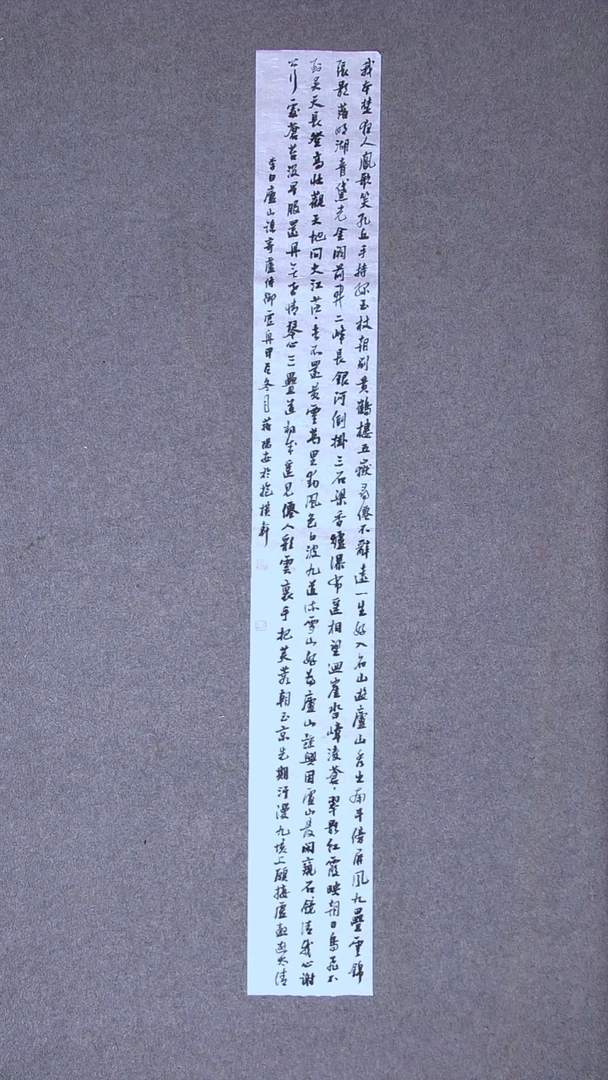 我本楚狂人鳳歌笑孔丘手持綠玉杖朝別黃鶴樓五嶽尋僊不辭遠一生好入名山遊廬山秀出南斗傍屏風九疊雲錦
張影落明湖青黛光金闕前開二峰長銀河倒掛三石梁香爐瀑布遙相望迴崖沓嶂凌蒼蒼翠影紅霞映朝日鳥飛不
到吳天長登高壯觀天地間大江茫茫去不還黃雲萬里動風色白波九道流雪山好為廬山謠興因廬山發閑窺石鏡清我心謝
公行處蒼苔沒早服還丹無世情琴心三疊道初成遙見僊人彩雲裏手把芙蓉朝玉京先期汗漫九垓上願接盧敖遊太清
李白廬山謠寄盧侍御虛舟甲辰冬月 於抱樸軒